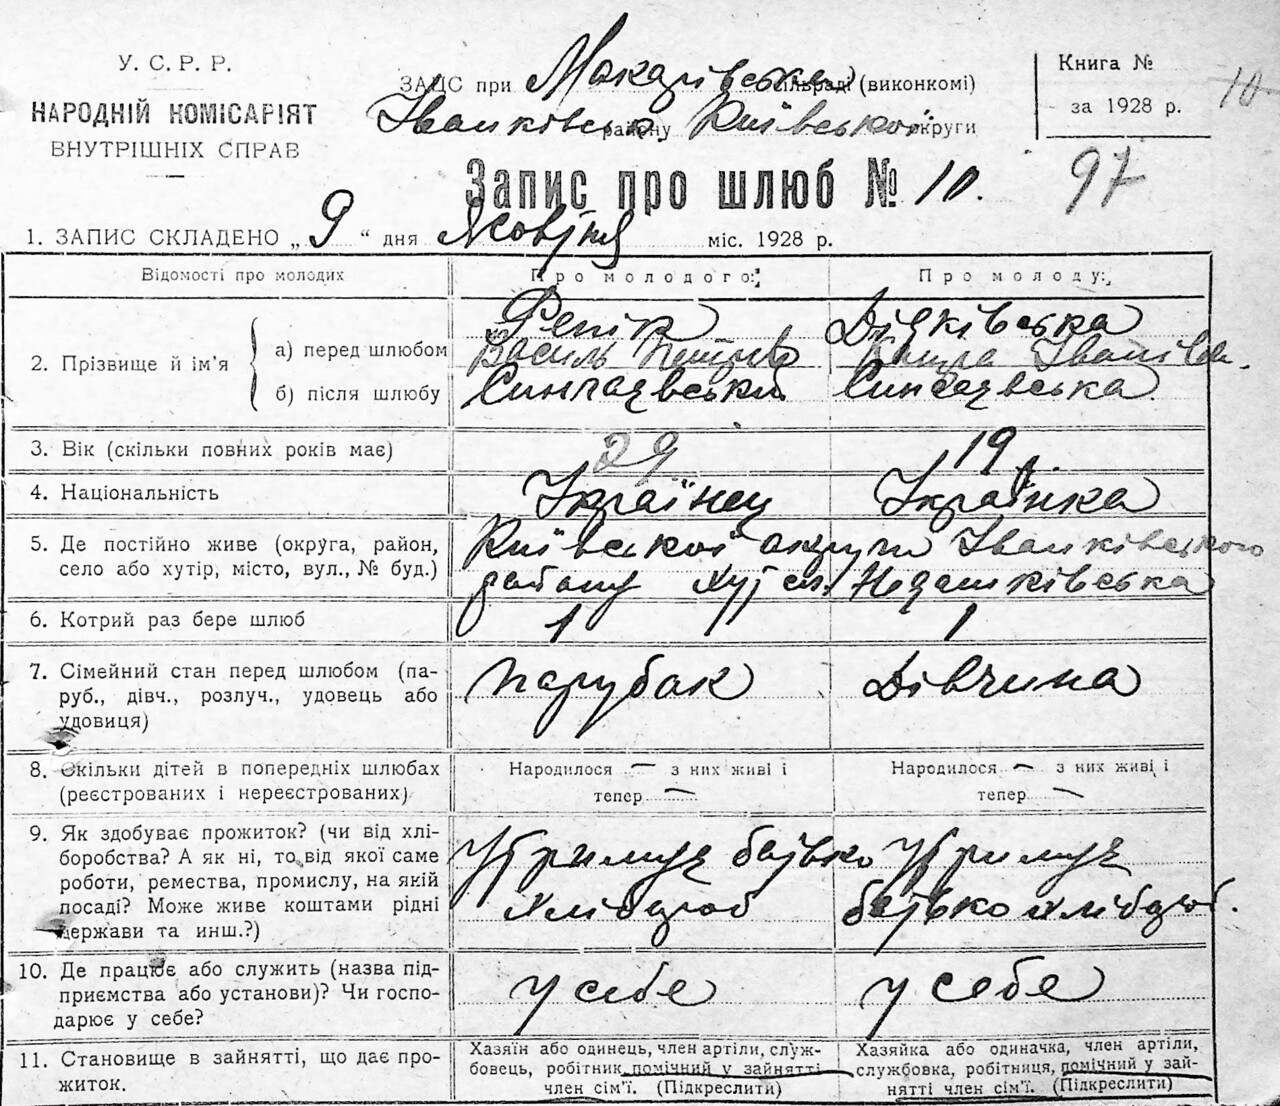 У. С. Р. Р.
НАРОДНІЙ КОМІСАРІЯТ
ВНУТРІШНІХ СПРАВ
ЗАЦС при Макарівській сільраді (виконкомі)
Іванківськ. району Київської округи
Книга №
за 1928 р.
10
97
Запис про шлюб № 10.
1. ЗАПИС СКЛАДЕНО „ 9 “ дня Жовтня міс. 1928 р.
Відомості про молодих
Про молодого:
Про молоду:
2. Прізвище й ім'я
а) перед шлюбом
б) після шлюбу
Василь
Дідківська
Іванівн.
Сингаєвський
Сингаєвська
3. Вік (скільки повних років має)
29
19 р.
4. Національність
Українец
Українка
5. Де постійно живе (округа, район,
село або хутір, місто, вул., № буд.)
Київської округи Іванківського
району Недашківська
6. Котрий раз бере шлюб
1
1
7. Сімейний стан перед шлюбом (па-
руб., дівч., розлуч., удовець або
удовиця)
Парубак
Дівчина
8. Скільки дітей в попередніх шлюбах
(реєстрованих і нереєстрованих)
Народилося — з них живі і
тепер —
Народилося — з них живі і
тепер —
9. Як здобуває прожиток? (чи від хлі-
боробства? А як ні, то від якої саме
роботи, ремества, промислу, на якій
посаді? Може живе коштами рідні
держави та инш.?)
Утримує батько
хлібороб
Утримує
батько хлібороб.
10. Де працює або служить (назва під-
приємства або установи)? Чи госпо-
дарює у себе?
у себе
у себе
11. Становище в зайнятті, що дає про-
житок.
Хазяїн або одинець, член артіли, служ-
бовець, робітник, помічний у зайнятті
член сім'ї. (Підкреслити)
Хазяйка або одиначка, член артіли,
службовка, робітниця, помічний у зай-
нятті член сім'ї. (Підкреслити)